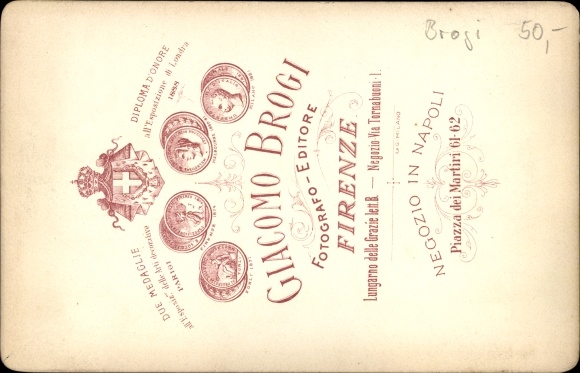 Brogi 50,-
DIPLOMA D'ONORE
all'Esposizione di Londra
1888
DUE MEDAGLIE
all'Esposiz.ne delle Arti decorative
PARIGI
GIACOMO BROGI
FOTOGRAFO-EDITORE
FIRENZE
Lungarno delle Grazie lett. B. — Negozio Via Tornabuoni. 1.
NEGOZIO IN NAPOLI
Piazza dei Martiri 61-62